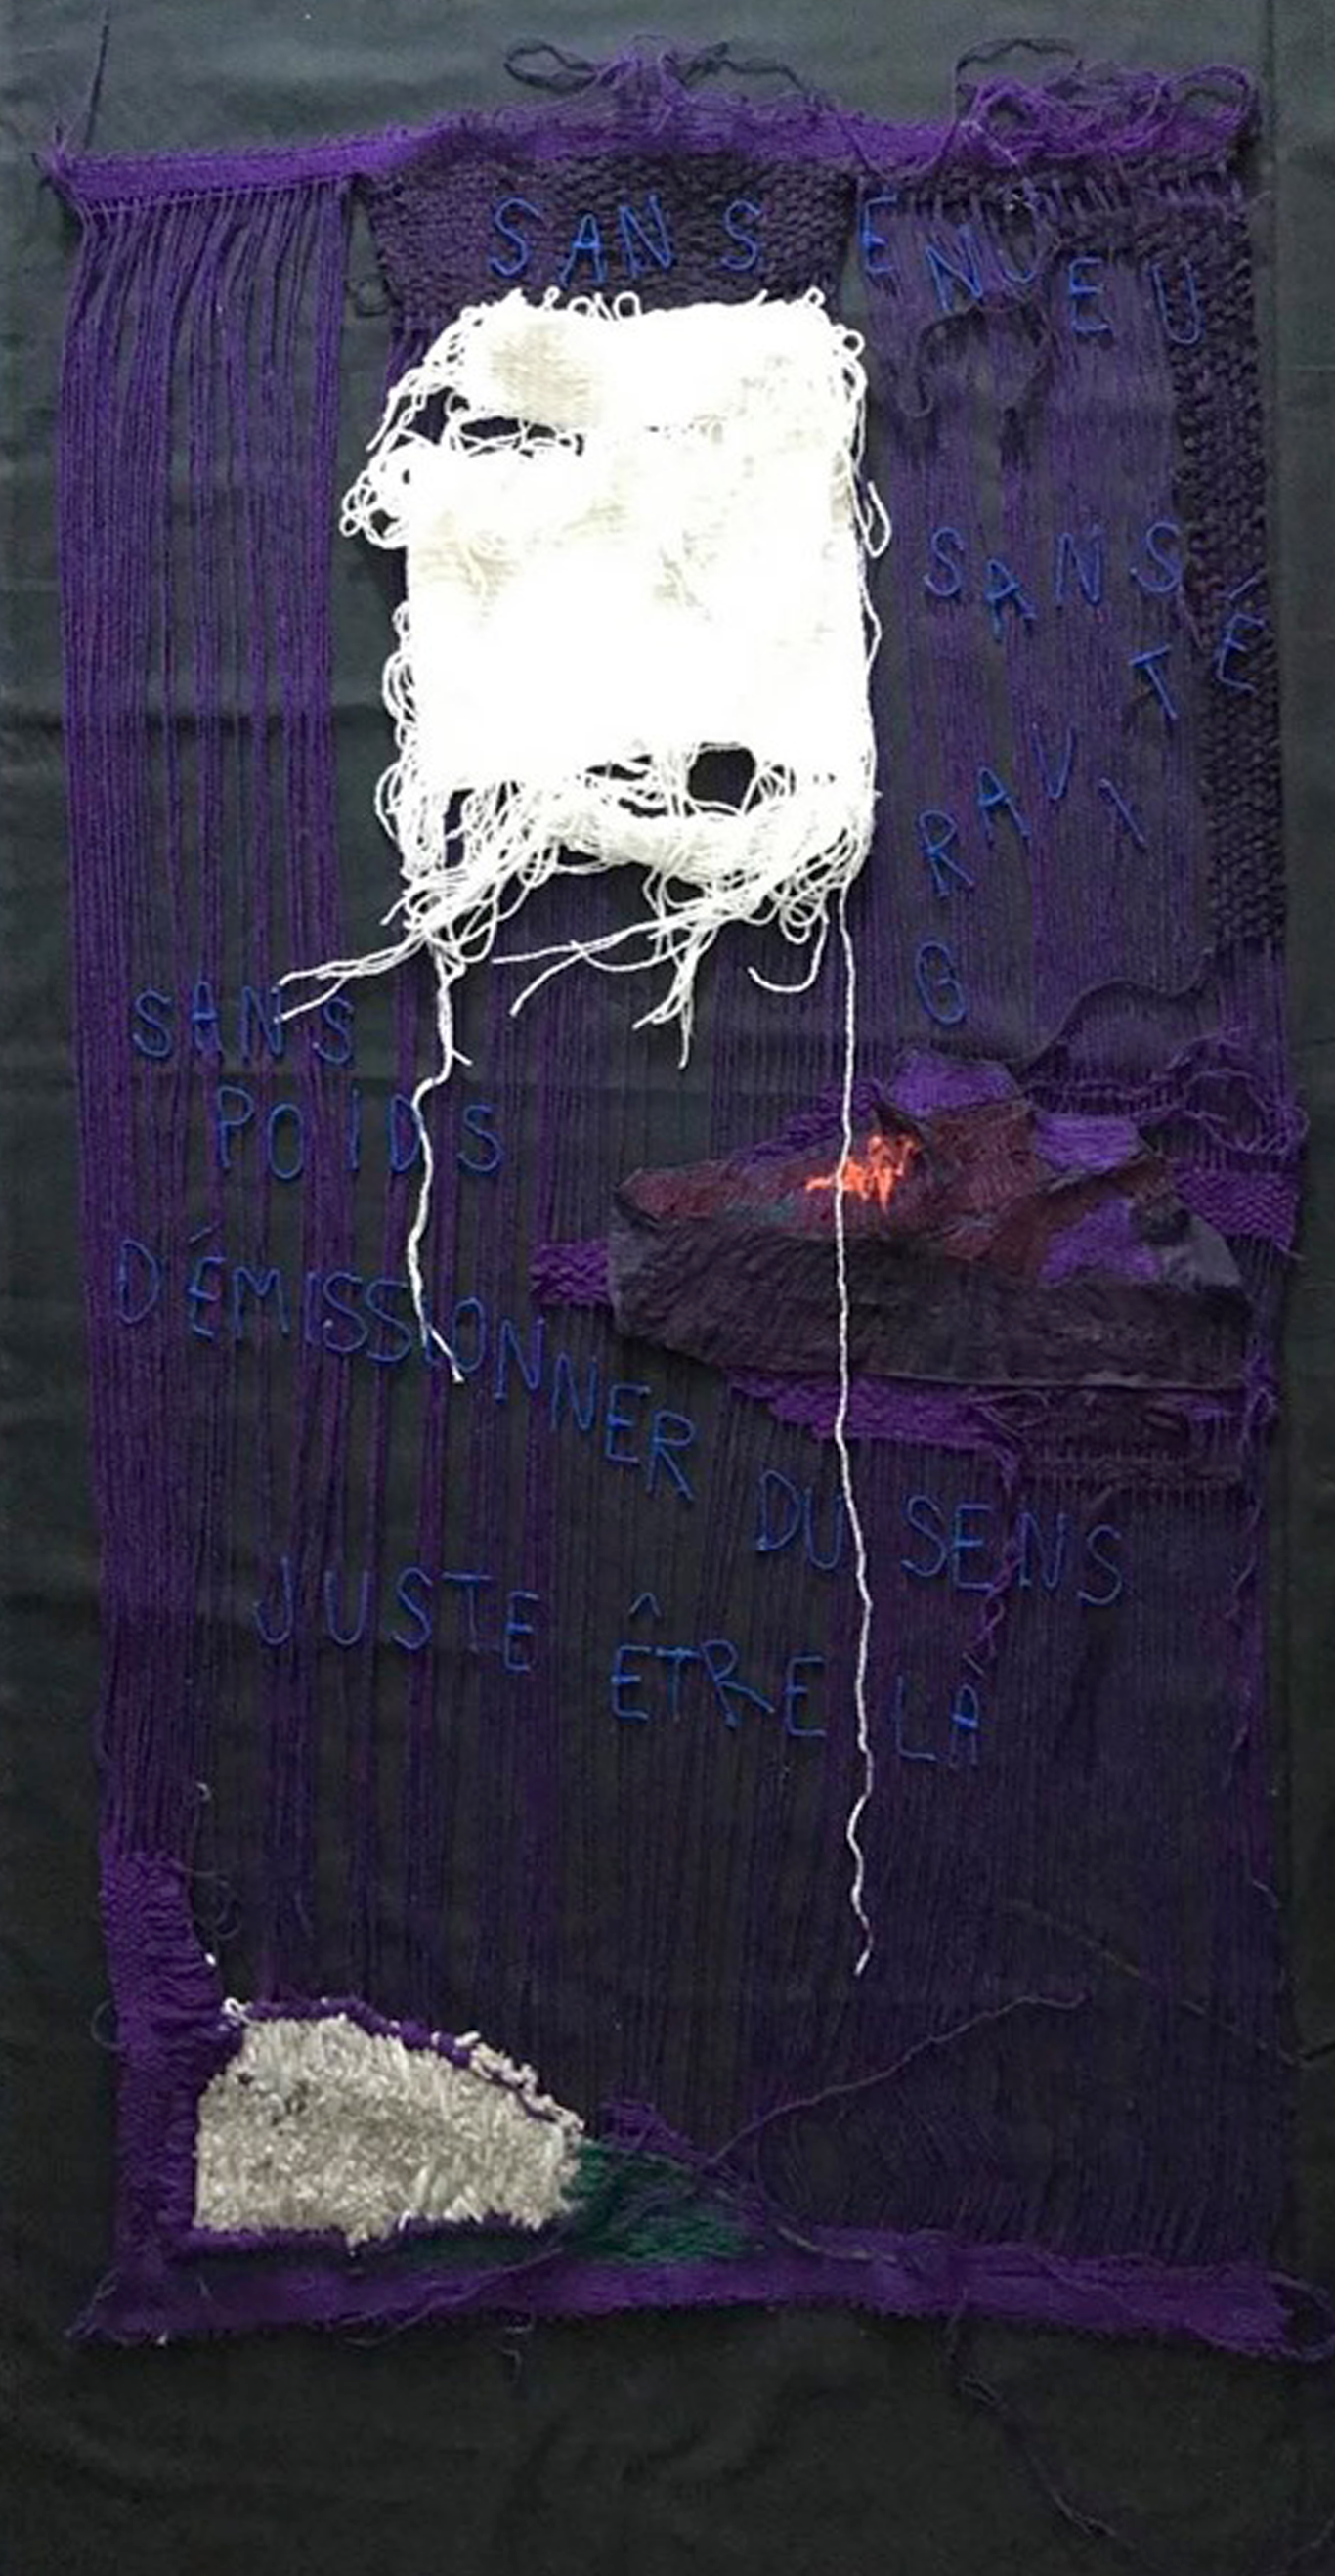 SANS ENJEU
SANS
GRAVITÉ
SANS
POIDS
DÉMISSIONNER DU SENS
JUSTE ÊTRE LÀ